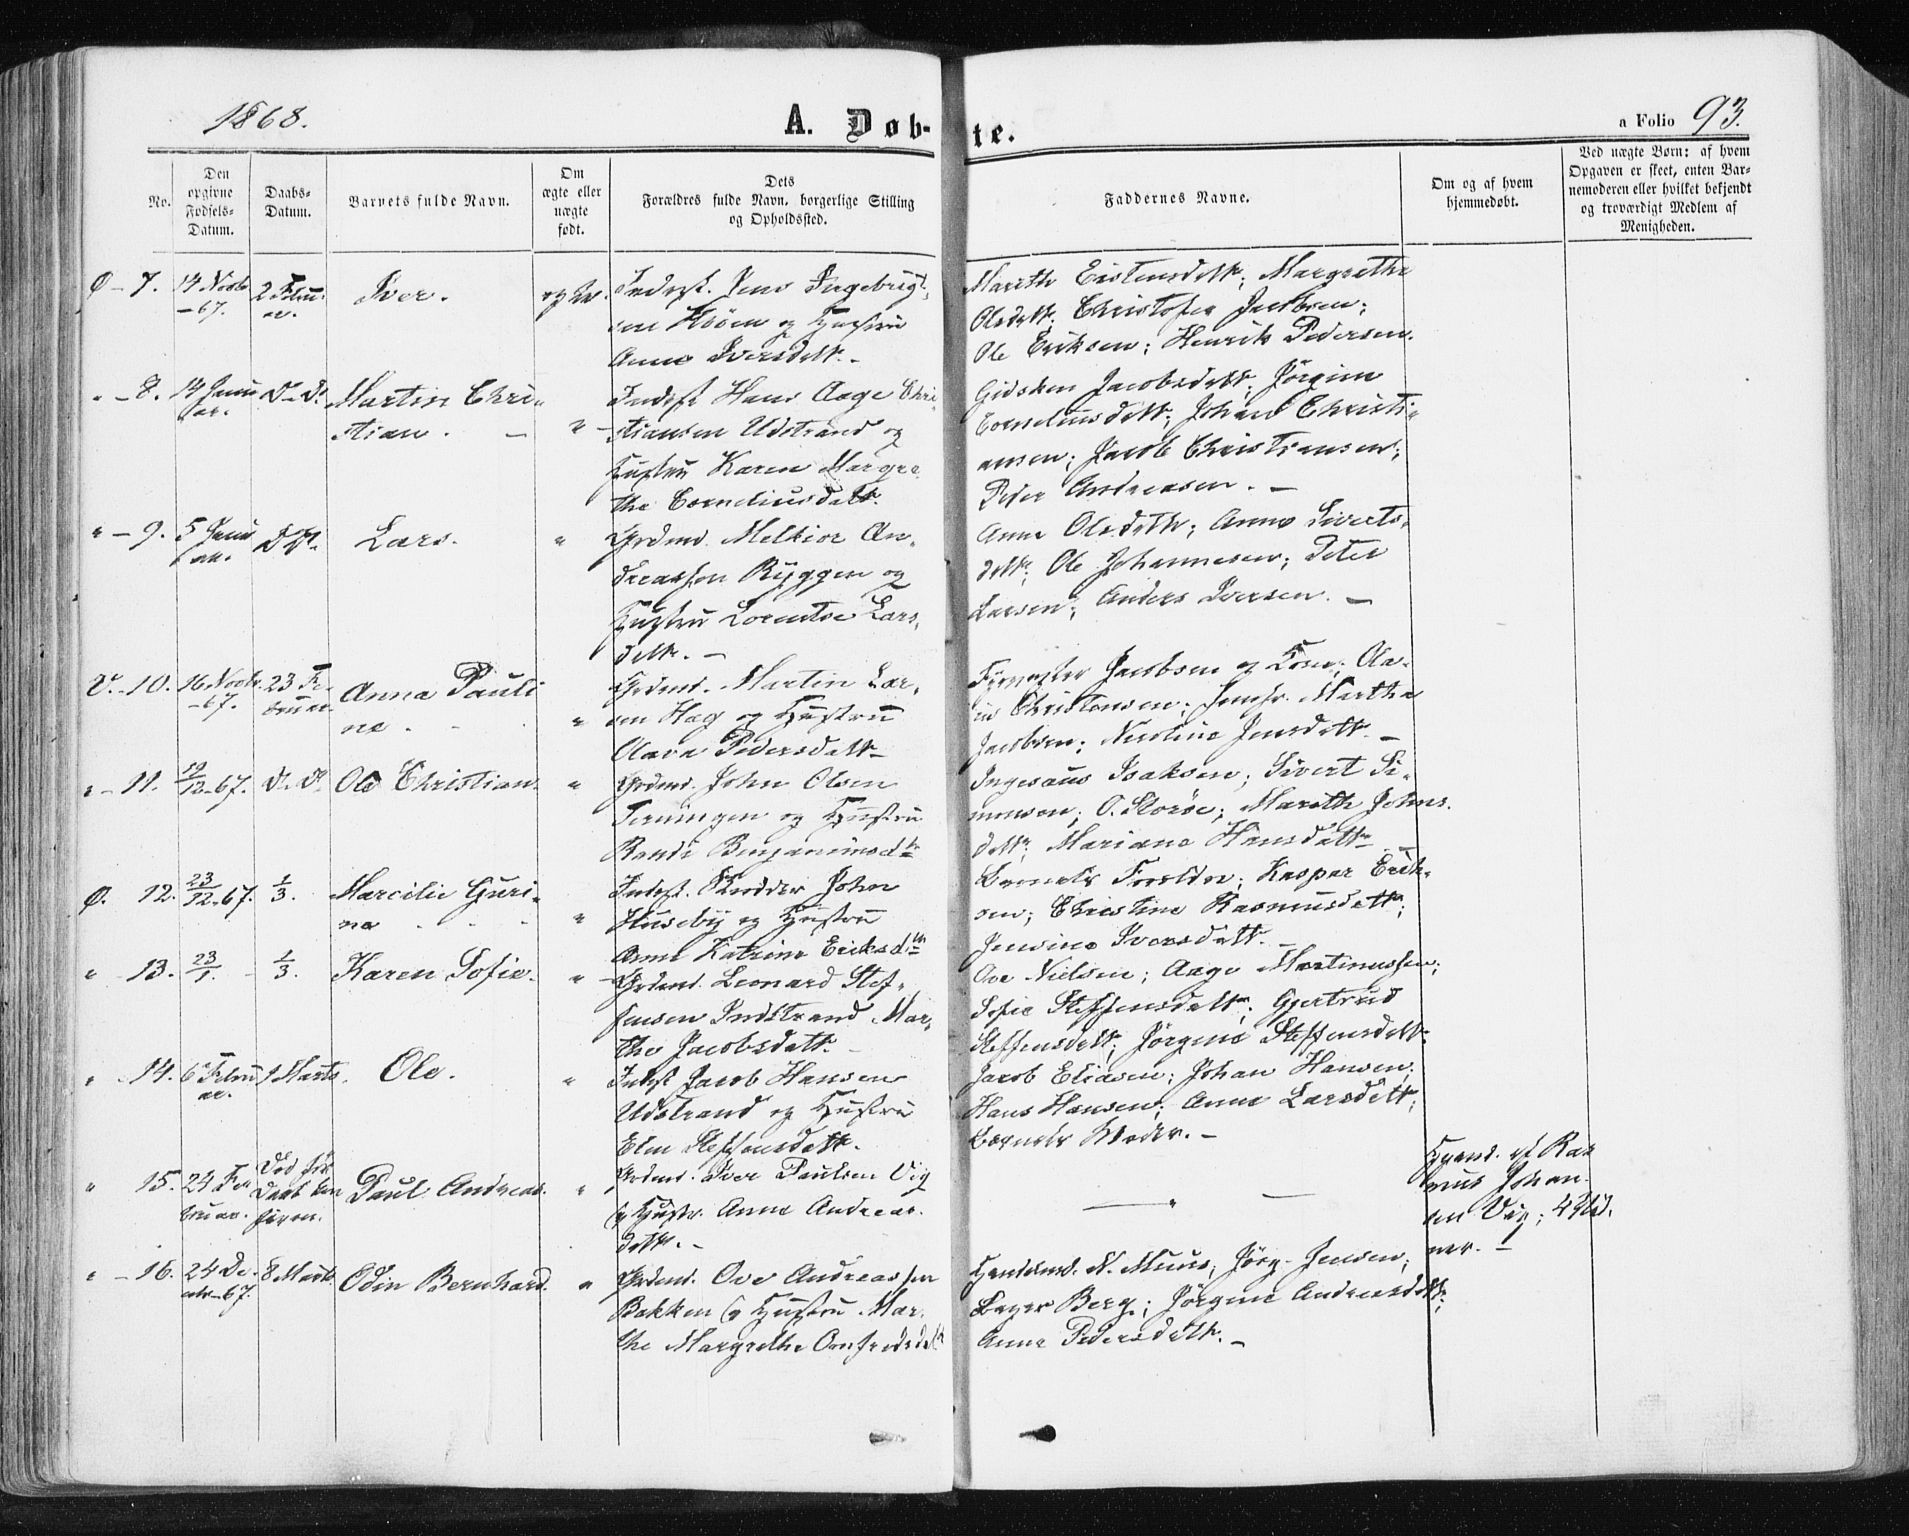 1868.
A. Døb-
te.
a Folio 93.
No.
Den
opgivne
Fødsels-
Datum.
Daabs-
Datum.
Barnets fulde Navn.
Om
ægte eller
uægte
født.
Dets
Forældres fulde Navn, borgerlige Stilling
og Opholdssted.
Faddernes Navne.
Om og af hvem
hjemmedøbt.
Ved uægte Børn: af hvem
Opgaven er skeet, enten Bar-
nemoderen eller hvilket bekjendt
og troværdigt Medlem af
Menigheden.
Ø - 7. 14 Novbr
-67.
2 Febru-
ar.
Iver.
Inderst. Jens Ingebrigt-
sen og Hustru
Anne Iversdatt. -
Marith Eistensdatt; Margrethe
Olsdatt; Christofer Jacobsen;
Ole Eriksen; Henrik Pedersen.
" - 8. 14 Janu
ar.
Do Do
Martin Chri-
stian. -
"
Inderst Hans Aage Chri-
stiansen Udstrand og
Hustru Karen Margre-
the Corneliusdatt.
Gidsken Jacobsdatt; Jørgine
Corneliusdatt; Johan Christi-
ansen; Jacob Christiansen;
Peder Andreasen. -
" - 9. 5 Janu
ar.
Do Do
Lars.
"
Grdmd. Melkior An-
dreassen Ryggen og
Hustru Lorentse Lars-
datt. -
Anne Olsdatt; Anne Siverts-
datt; Ole Johannesen; Peter
Larsen; Anders Iversen. -
V. - 10. 16 Novbr.
-67.
23 Fe-
bruar.
Anna Pauli
ne.
"
Grdmd. Martin Lar-
sen Hag og Hustru
Olava Pedersdatt -
Jacobsen og Kone; Ola-
us Christensen; Jomfr. Martha
Jacobsen; Nicoline Jensdatt. -
" - 11. 19/12-67. Do Do Ole Christian. "
Grdmd. John Olsen
Terningen og Hustru
Randi Benjaminsdtr
Ingesaus Isaksen; Sivert Si-
monsen; O. Storøe; Marith Johns-
datt; Mariane Hansdatt -
Ø. 12. 23/12-67. 1/3. Marcilie Guri-
ne
"
Inderst. Skredder John
Huseby og Hustru
Anne Katrine Eriksdtr
Barnets Forældre; Kaspar Erik-
sen; Christine Rasmusdatt;
Jensine Iversdatt. -
" - 13. 23/1. - 1/3. Karen Sofie. "
Grdmd. Leonard Stef-
fensen Indstrand Mar-
the Jacobsdatt. -
Ove Nielsen; Aage Martinussen;
Sofie Steffensdatt; Gjertrud
Steffensdatt; Jørgine Steffensdatt
" - 14. 6 Febru
ar.
1 Marts. Ole. "
Inderst Jacob Hansen
Udstrand og Hustru
Elen Steffensdatt.
Jacob Eliasen; Johan Hansen;
Hans Hansen; Anne Larsdatt;
Barnets Moder. -
" 15. 24 Fe-
bruar.
Død før
Daab
Paul Andreas. "
Grdmd. Iver Paulsen Vig
og Hustr. Anne Andreas-
datt. -
" -
Hjemd. af Ras
mus Johan-
sen Vig; 4 Vid-
ner. -
" - 16. 24 De-
cbr-67.
8 Marts Odin Bernhard. "
Grdmd. Ove Andreassen
Bakken og Hustru Mar-
the Margrethe
Handelsmd. N. Muus; Jørg. Jensen;
Berg; Jørgine Andreasdatt;
Anne Pedersdatt. -